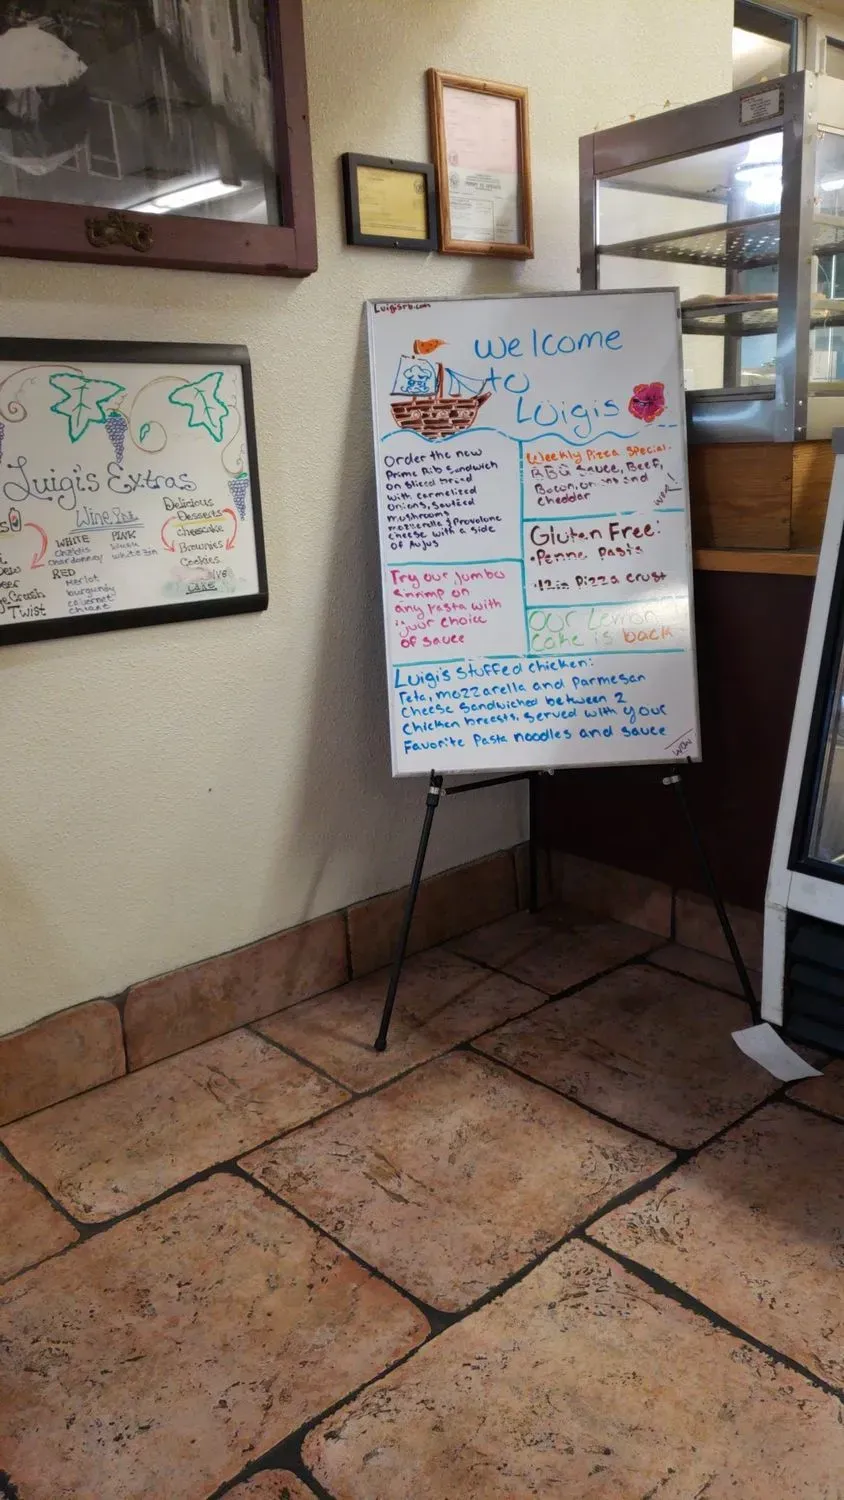 Luigisrb.com
Welcome
to
Luigis
Order the new
Prime Rib Sandwich
on Sliced bread
with carmelized
Onions, Sautéed
mushrooms
mozzerella & Provolone
cheese with a side
of Aujus
Weekly Pizza Special:
BBQ Sauce, Beef,
Bacon, onions and
cheddar
Gluten Free:
•Penne Pasta
•12in Pizza crust
Try our Jumbo
Shrimp on
any Pasta with
your choice
of sauce
Our Lemon
Cake is back
Luigi's Stuffed chicken:
Feta, mozzarella and Parmesan
Cheese Sandwiched between 2
Chicken breasts. Served with your
Favorite Pasta noodles and sauce
WOW
Luigi's Extras
Wine
WHITE
Chablis
chardonnay
PINK
blush
white zin
RED
Merlot
burgundy
cabernet
chianti
Delicious
Desserts
Cheesecake
Brownies
Cookies
Cake
Crush
Twist